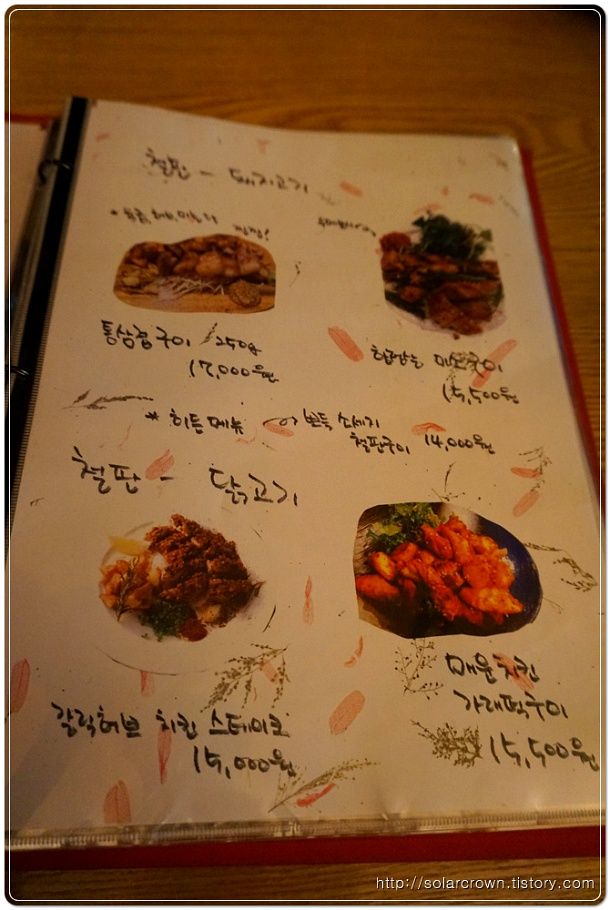 철판 - 돼지고기
통삼겹구이 250g
17,000원
미소구이
15,500원
* 히든메뉴 뽀드득 소세지
철판구이 14,000원
철판 - 닭고기
갈릭허브 치킨 스테이크
15,000원
매운치킨
가래떡구이
15,500원
http://solarcrown.tistory.com